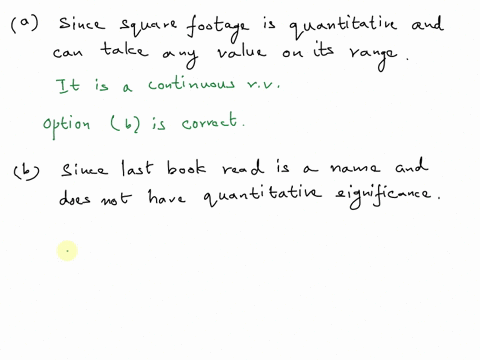 (a) Since square footage is quantitative and
can take any value on its range.
It is a continuous r.v.
Option (b) is correct.
(b) Since last book read is a name and
does not have quantitative significance.